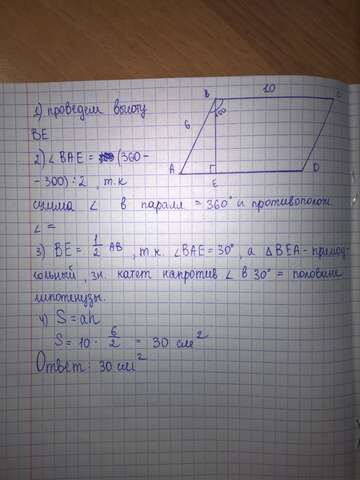 B 10 C
150
6
A E D
1) проведем высоту
BE
2) ∠ BAE = (360 -
- 300) : 2 , т.к
сумма ∠ в паралл = 360° и противополож
∠ =
3) BE = 1/2 AB , т.к. ∠BAE = 30°, а △ BEA - прямоу-
гольный, зн. катет напротив ∠ в 30° = половине
гипотенузы.
4) S = ah
S = 10 · 6/2 = 30 см²
Ответ: 30 см²